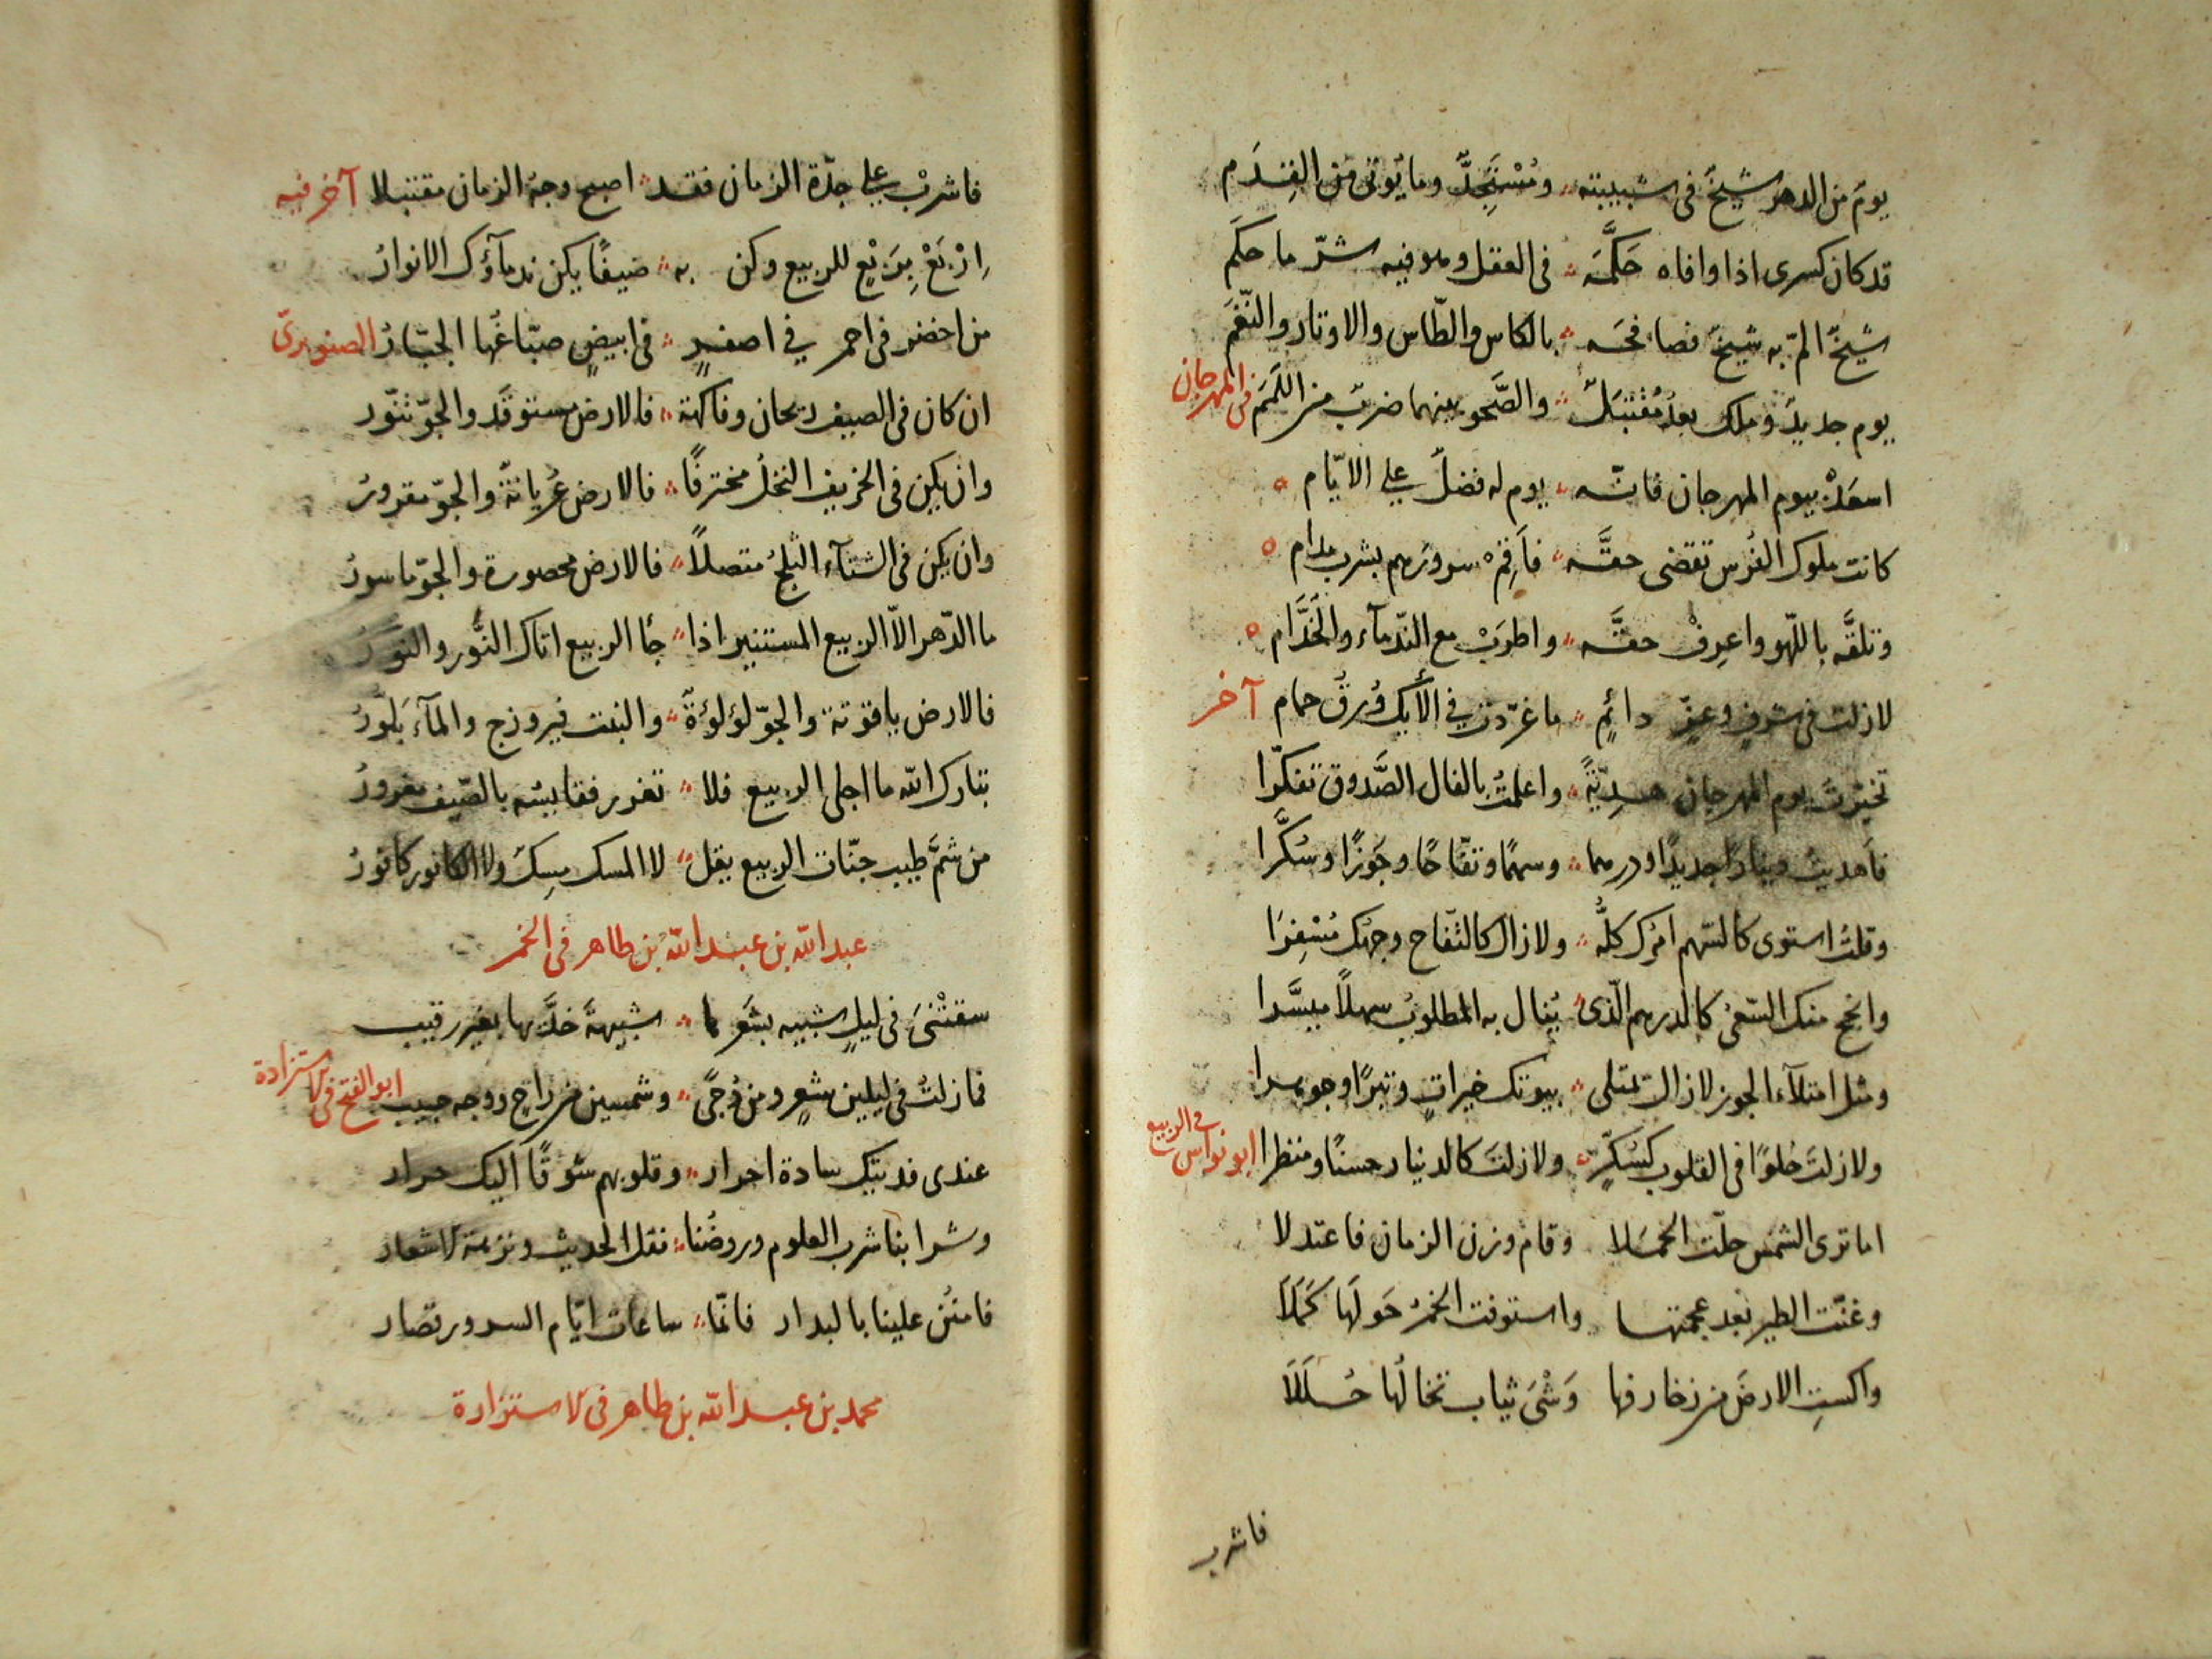 يومٌ من الدهر شيخٌ في شبيبته ومُسْتَجِدٌّ وما يُؤتى من القِدَم
قد كان كسرى اذا وافاه حَكَّمَه في العقل وهو فيه شرّ ما حكَم
شيخٌ المّ به شيخٌ فصافحَه بالكاس والطّاس والاوتار والنّغَم
يوم جديدٌ وملك بعدُ مُقْتَبَلٌ والصَّحو بينهما ضربٌ من اللَمَم في المهرجان
اسعَدْ بيوم المهرجان فانّه يوم له فضلٌ على الايّام
كانت ملوك الفُرس تقضى حقَّه فاَقِمْ سرورَهم بشرب مدام
وتلقَّه باللّهو واعرِفْ حقَّه واطرَبْ مع النّدماء والخَدَّام
لازلت في شرفٍ وعزٍّ دائمٍ ما غرّدت في الأيك وُرقُ حمام آخر
تخيّرتُ يوم المهرجان هديّةً واعلمتُ بالفال الصَّدوق تفكّرا
فاَهديتُ دينارًا جديدًا ودرهما وسهمًا وتفّاحًا وجَوزًا وسُكَّرا
وقلتُ استوى كالسّهم امرُك كلُّه ولازال كالتّفاح وجهُك مُسْفِرَا
وانجح منك السّعىُ كالدرهم الّذي يُنال به المطلوبُ سهلاً ميسَّرا
ومثل امتلآء الجوز لازالت تمتلى بيوتك خيراتٍ وتبرًا وجوهرا
ولازلتَ حُلوًا في القلوب كسُكّرٍ ولازلتَ كالدينار حسنًا ومنظرا ابو نواس في الربيع
اما ترى الشمس حلّت الحمَلا وقام وزن الزمان فاعتدلا
وغنّت الطير بعد عجمتها واستوفت الخمرُ حَولَها كَمَلَا
واكستِ الارضَ من زخارفها وَشْىَ ثياب تخالُها حُلَلَا
فاشرب
فاشربْ على جدّة الزمان فقد اصبح وجهُ الزمان مقتبلا آخر فيه
اِرْبَعْ بِرَبْعٍ للربيع وكن به ضيفًا يكن ندمآؤك الانوارُ
من اخضر في احمر في اصفرٍ في ابيضٍ صبّاغُها الجبّارُ الصنوبرىّ
ان كان في الصيف ريحان وفاكهة فالارض مستوقَد والجوّ تنّور
وان يكن في الخريف النخلُ مخترفًا فالارض عُريانةٌ والجوّ مقرورُ
وان يكن في الشتآء الثلجُ متصلاً فالارض محصورة والجوّ ماسورُ
ما الدّهر الاّ الربيع المستنير اذا جا الربيع اتاك النَّور والنورُ
فالارض ياقوتة والجوّ لؤلؤةٌ والنبت فيروزج والمآء بَلّورُ
تبارك الله ما احلى الربيع فلا تغرر فقايسُه بالصّيف مغرورُ
من شمَّ طيب جنّات الربيع يقل لا المسك مِسكٌ ولا الكافور كافورُ
عبد الله بن عبد الله بن طاهر في الخمر
سقتْنىَ في ليلٍ شبيه بشَعرِها شبيهةَ خدَّيها بغير رقيب
فمازلتُ في ليلين شعرٍ ومن دُجًى وشمسين من راحٍ ووجه حبيب ابو الفتح في الاستزادة
عندى فديتك سادة احرار وقلوبهم شوقًا اليك حرار
وشرابنا شرب العلوم وروضُنا نقل الحديث ونزهة الاشعار
فامنُن علينا بالبدار فانّما ساعات ايّام السرور قصار
محمد بن عبد الله بن طاهر في الاستزادة